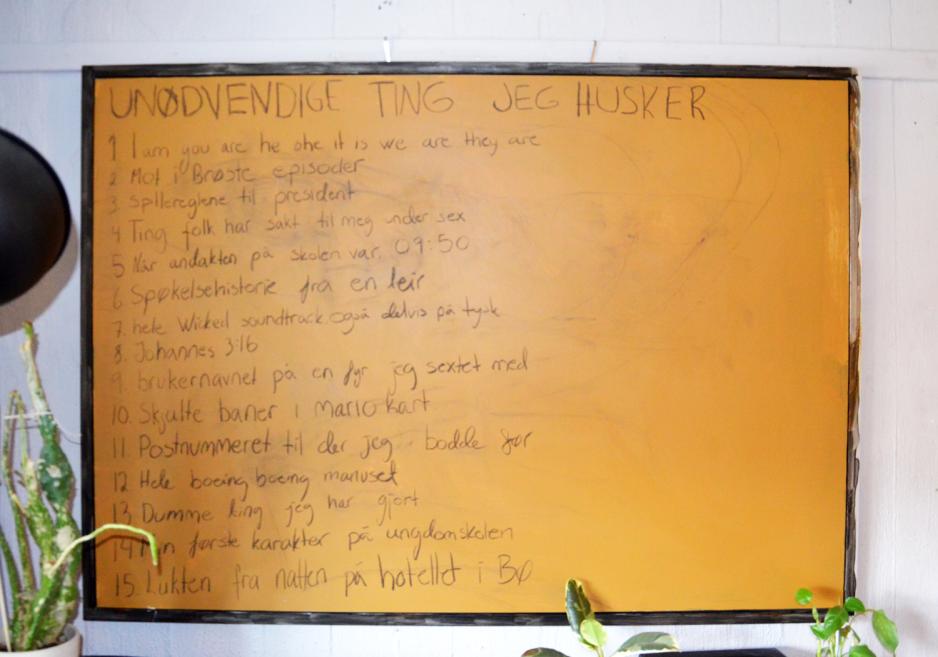 UNØDVENDIGE TING JEG HUSKER
1 I am you are he she it is we are they are
2 Mot i Brøste episoder
3 Spillereglene til president
4 Ting folk har sakt til meg under sex
5 Når andakten på skolen var, 09:50
6 Spøkelsehistorie fra en leir
7. hele Wicked soundtrack, også delvis på tysk
8. Johannes 3:16
9. brukernavnet på en fyr jeg sextet med
10. Skjulte baner i mario kart
11. Postnummeret til der jeg bodde før
12 Hele boeing boeing manuset
13 Dumme ting jeg har gjort
14 Min første karakter på ungdomskolen
15. Lukten fra natten på hotellet i Bø